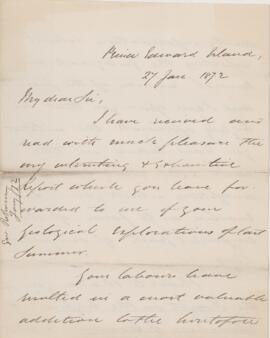 Prince Edward Island,
27 Jan. 1872
My dear Sir,
I have received and
read with much pleasure the
very interesting & exhaustive
report which you have for-
warded to me of your
geological explorations of last
Summer.
Your labours have
resulted in a most valuable
addition to the heretofore
Gov Robinson